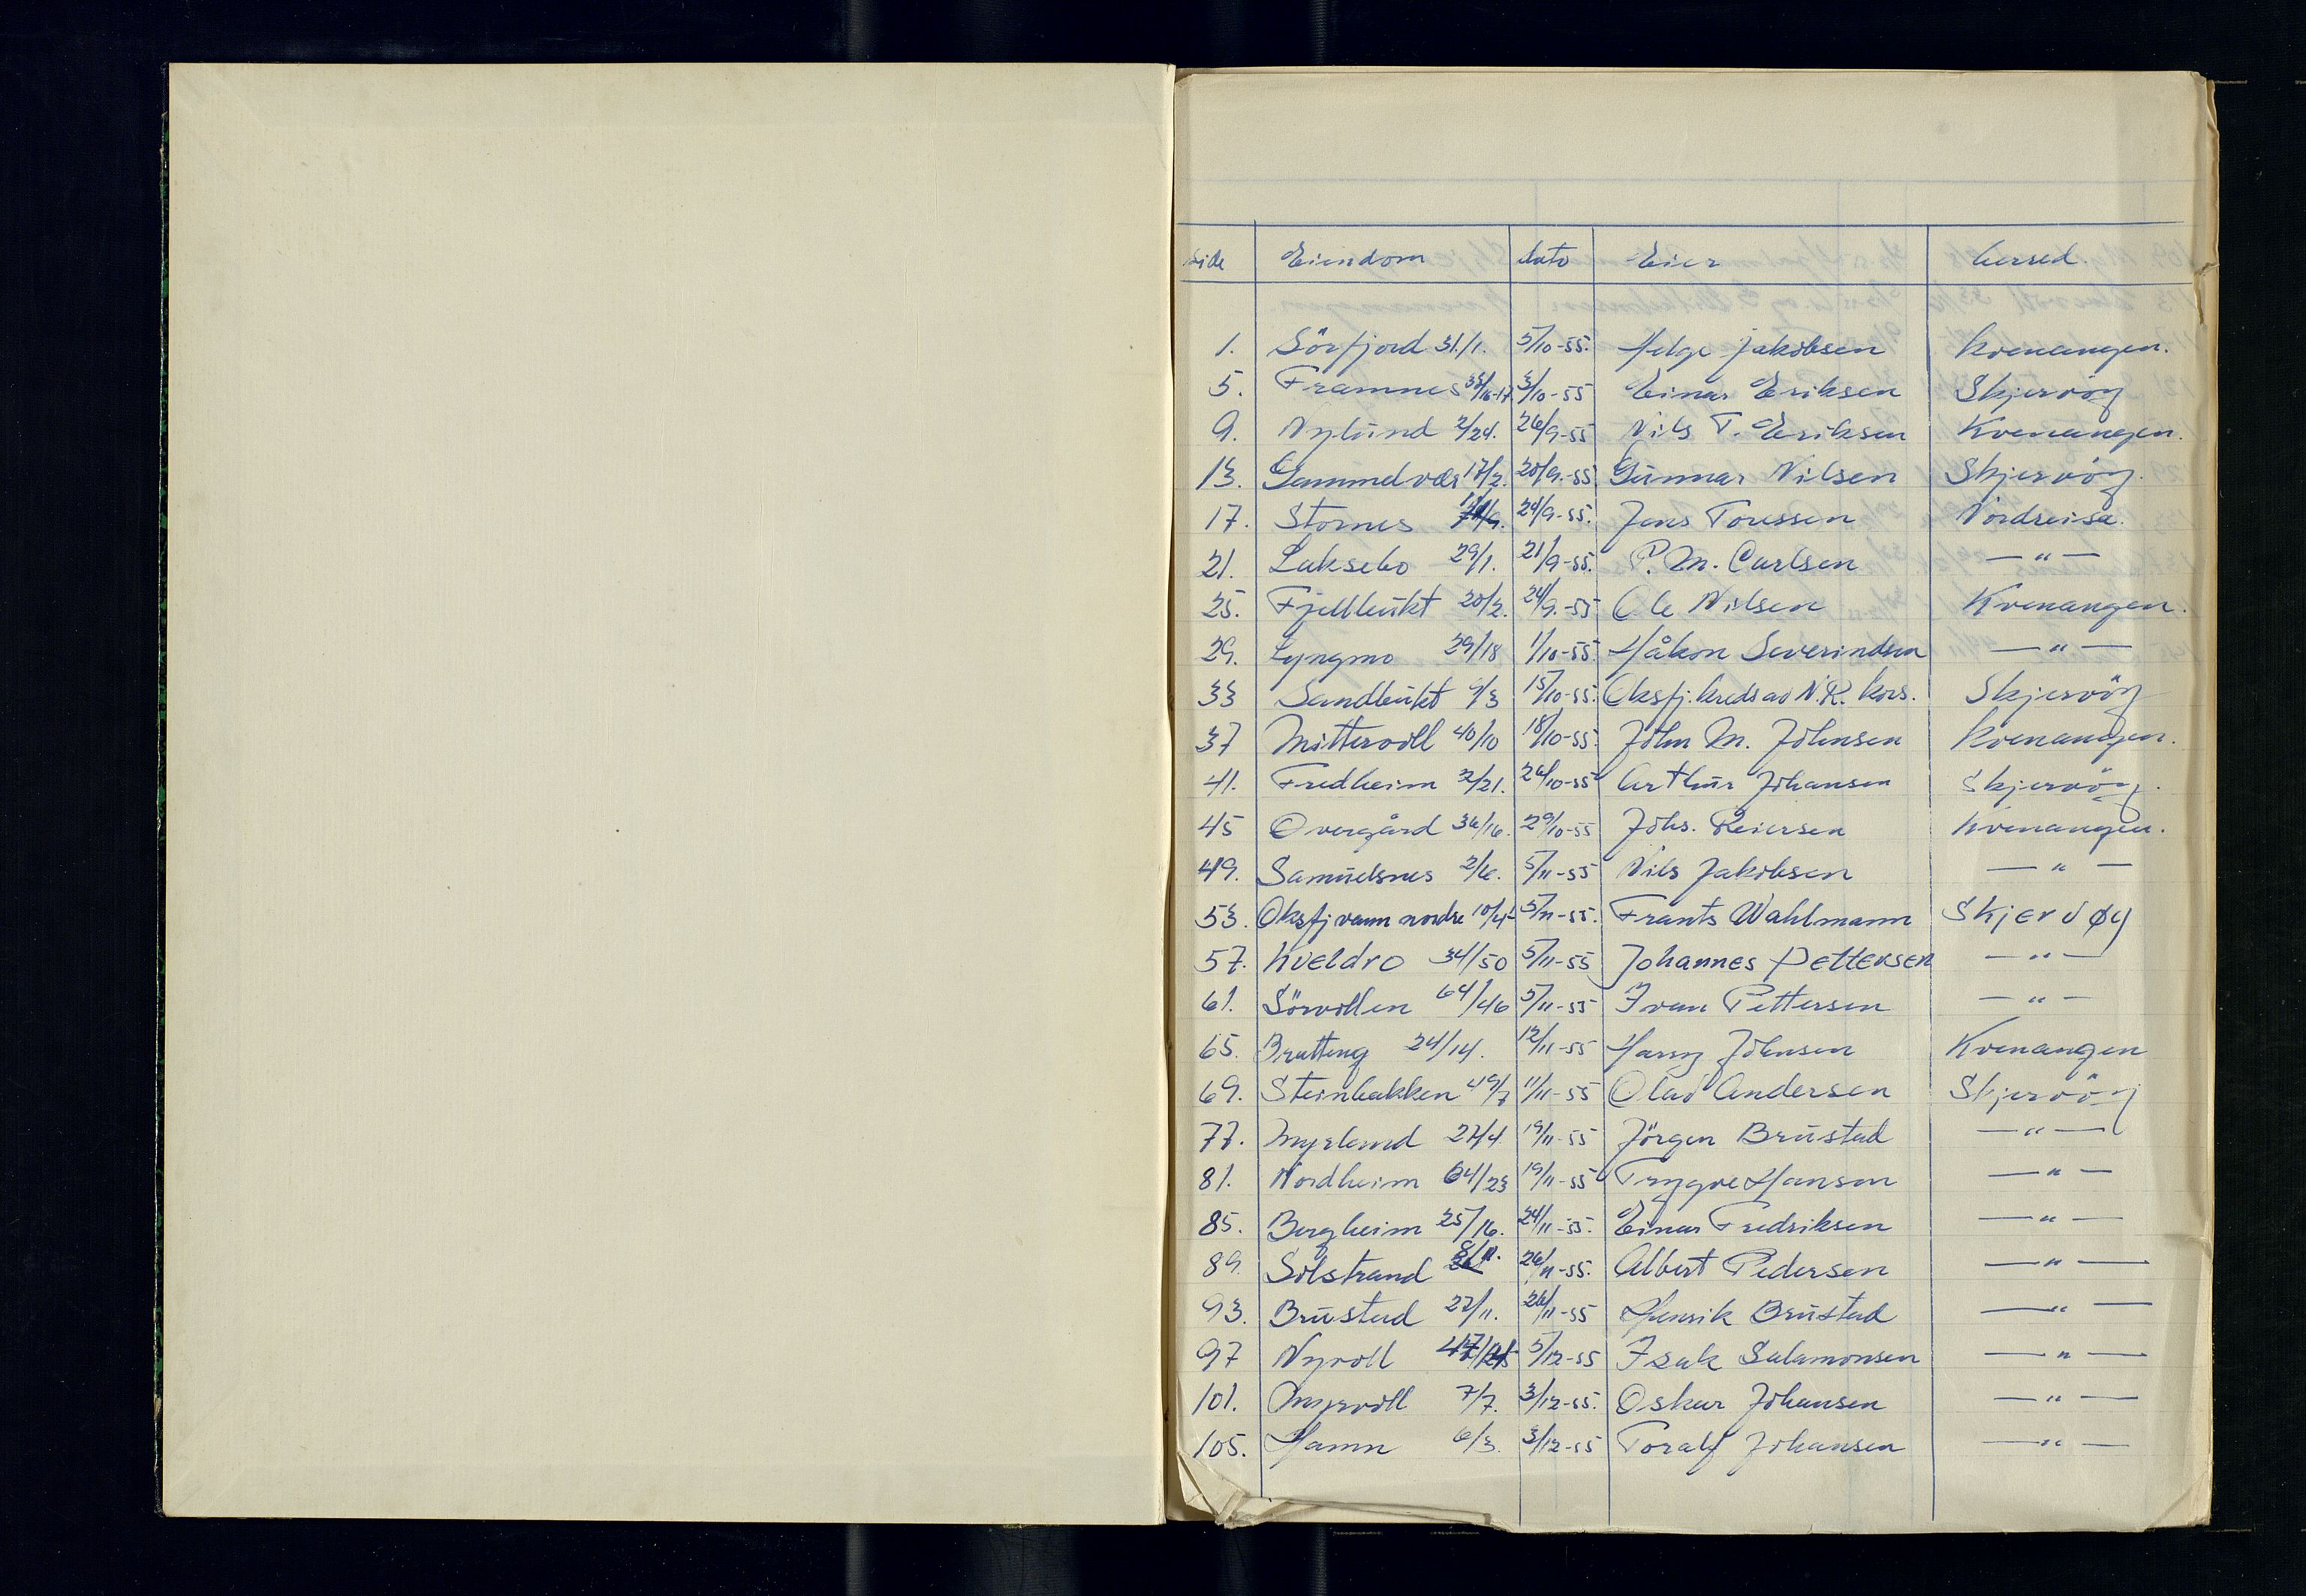 Side Eiendom dato Eier herred.
1. Sörfjord 31/1. 5/10-55. Helge Jakobsen Kvenangen.
5. Framnes 33/16-17 3/10-55 Einar Eriksen Skjervöy
9. Nylund 2/24. 26/9-55 Nils T. Eriksen Kvenangen.
13. Gammelvær 17/2. 20/9.-55 Gunnar Nilsen Skjervöy.
17. Stornes 24/9-55. Jens Toressen Nordreisa.
21. Laksebo 29/1. 21/9-55. P. M. Carlsen —"—
25. Fjellbukt 20/2. 24/9.-55 Ole Nilsen Kvenangen.
29. Lyngmo 29/18 1/10-55. Håkon Severindsen —"—
33 Sandbukt 9/3 15/10-55. Oksfj. kreds av N.R. Kors. Skjervöy
37 Mittervoll 40/10 18/10-55. John M. Johnsen Kvenangen.
41. Fredheim 2/21. 26/10-55 Arthur Johansen Skjervöy.
45 Overgård 36/16. 29/10-55 Johs. Reiersen Kvenangen.
49. Samuelsnes 2/6. 5/11-55 Nils Jakobsen —"—
53. Oksfjvann nordre 10/4 5/11-55. Frants Wahlmann Skjervøy
57. Kveldro 34/50 5/11-55 Johannes Pettersen —"—
61. Sörvollen 64/46 5/11-55 Ivan Pettersen —"—
65. Bratteng 24/14. 12/11-55 Harry Johnsen Kvenangen
69. Steinbakken 49/7 11/11-55 Olav Andersen Skjervöy
77. Myrland 27/4. 19/11-55 Jörgen Brustad —"—
81. Nordheim 64/23 19/11-55 Trygve Hansen —"—
85. Bergheim 25/16. 24/11-55. Einar Fredriksen —"—
89. Solstrand 8/11. 26/11-55. Albert Pedersen —"—
93. Brustad 27/11. 26/11-55 Henrik Brustad —"—
97 Nyvoll 5/12-55 Isak Salamonsen —"—
101. Myrvoll 7/7. 3/12-55. Oskar Johansen —"—
105. Hamn 6/3. 3/12-55 Toralf Johansen —"—